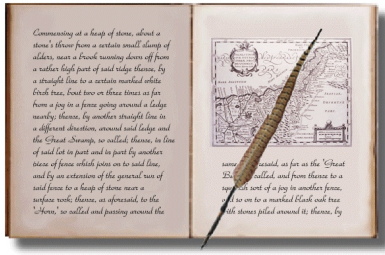 Commencing at a heap of stone, about a
stone's throw from a certain small clump of
alders, near a brook running down off from
a rather high part of said ridge thence, by
a straight line to a certain marked white
birch tree, bout two or three times as far
from a jog in a fence going around a ledge
nearby; thence, by another straight line in
a different direction, around said ledge and
the Great Swamp, so called; thence, in line
of said lot in part and in part by another
piece of fence which joins on to said line,
and by an extension of the general run of
said fence to a heap of stone near a
surface rock; thense, as aforesaid, to the
"Horn," so called and passing around the
same aforesaid, as far as the "Great
called, and from thence to a
sort of a jog in another fence,
and so on to a marked black oak tree
with stones piled around it; thence, by